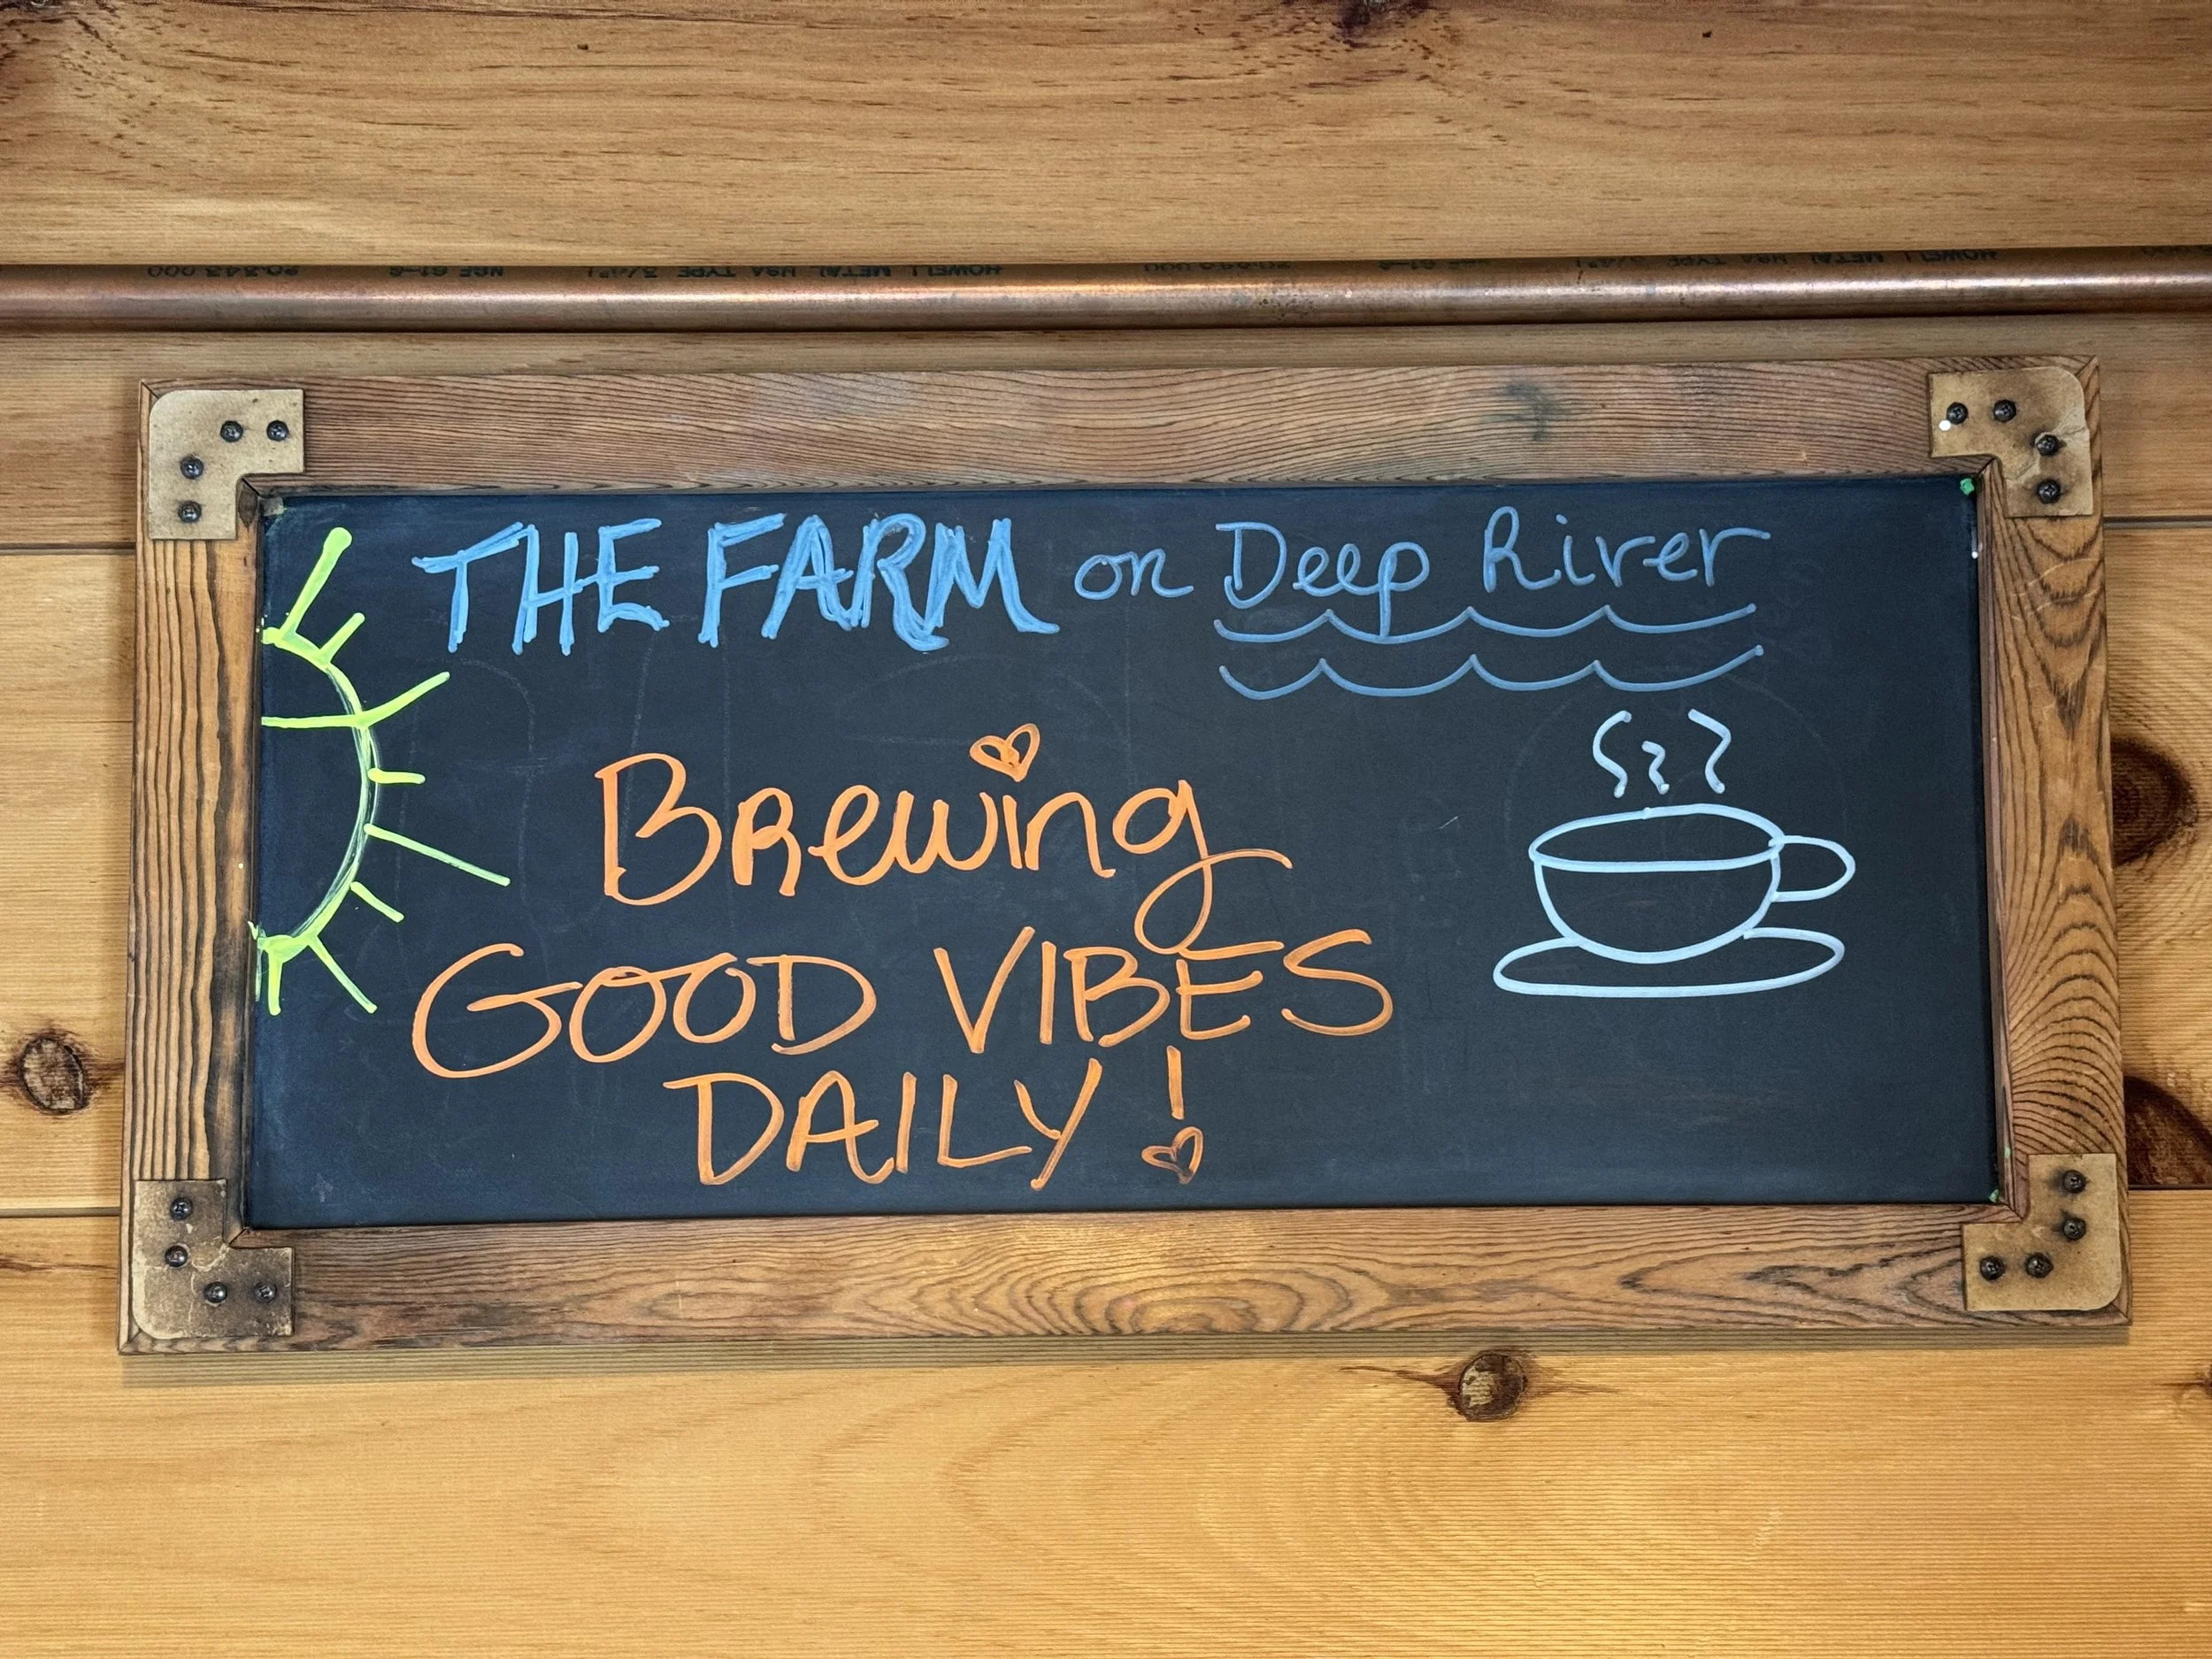 THE FARM on Deep River
Brewing
GOOD VIBES
DAILY!